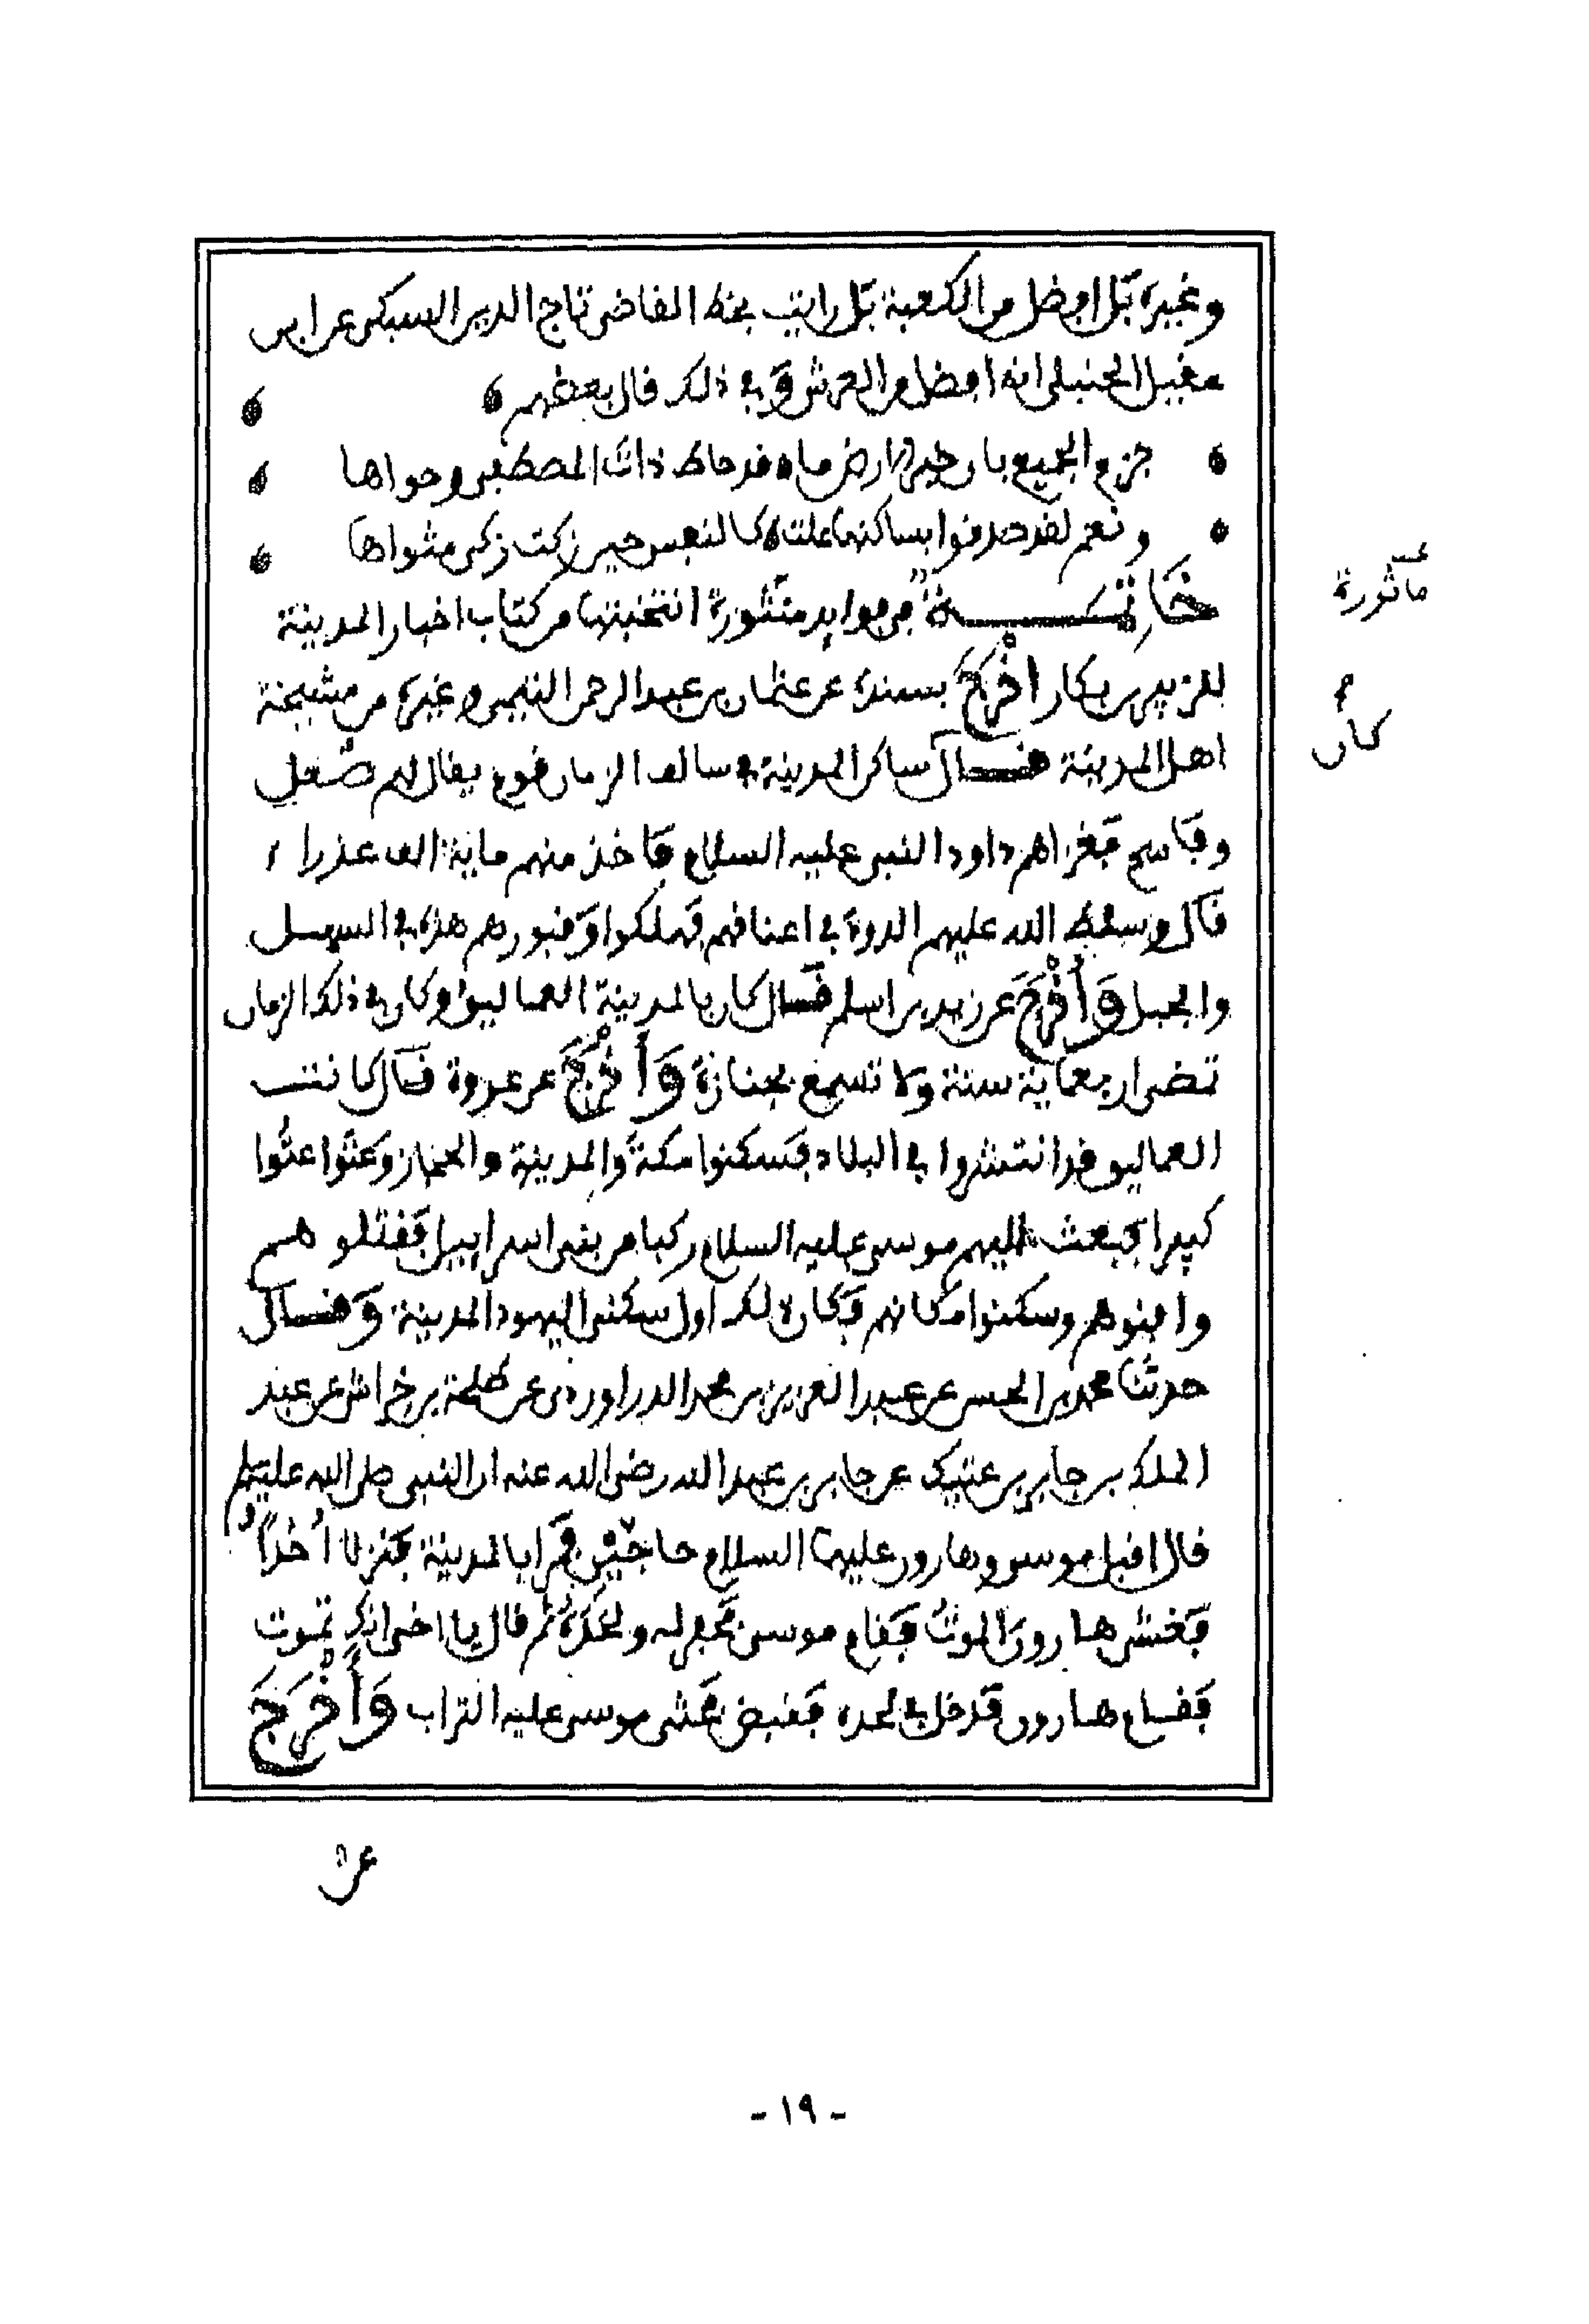 وغيره بل افضل من الكعبة بل رايت بخط القاضى تاج الدين السبكى عن ابن
عقيل الحنبلى انه افضل من العرش وفى ذلك قال بعضهم
جزم الجميع بان خير الارض ما قد حاط ذات المصطفى وحواها
ونعم لقد صدقوا بساكنها علت كالنفس حين زكت زكى مثواها
خاتمــة في فوايد منثورة انتخبتها من كتاب اخبار المدينة
للزبير بن بكار اخرج بسنده عن عثمان بن عبد الرحمن التيمى وغيره من مشيخة
اهل المدينة قال ساكن المدينة في سالف الزمان قوم يقال لهم صُعل
وفالج فغزاهم داود النبى عليه السلام فاخذ منهم ماية الف عذراء
قال وسلط الله عليهم الدود في اعناقهم فهلكوا وقبورهم هذه في السهل
والجبل وَأَخْرَجَ عن زيد بن اسلم قال كان بالمدينة العماليق وكان في ذلك الزمان
تمضى اربعماية سنة ولا تسمع بجنازة وَأَخْرَجَ عن عروة قال كانت
العماليق قد انتشروا في البلاد فسكنوا مكة والمدينة والحجاز وعتوا عتُوا
كبيرا فبعث اليهم موسى عليه السلام ركبا من بنى اسرايل فقتلوهم
وافنوهم وسكنوا مكانهم فكان ذلك اول سكنى اليهود المدينة وقال
حدثنا محمد بن الحسن عن عبد العزيز بن محمد الدراوردى عن طلحة بن خراش عن عبد
الملك بن جابر بن عتيك عن جابر بن عبد الله رضى الله عنه ان النبى صلى الله عليه وسلم
قال اقبل موسى وهارون عليهما السلام حاجّين فمرا بالمدينة فنزلا اُحُدًا
فغشى هارون الموت فقام موسى فحفر له ولحد ثم قال يا اخى انك تموت
فقام هارون فدخل في لحده فقبض فحثى موسى عليه التراب وَأَخْرَجَ
ماثورة
كان
عن
- ١٩ -